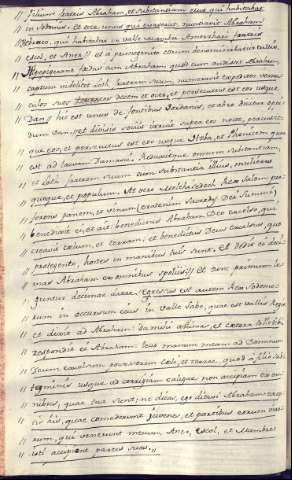 filium fratris Abraham, et substantiam ejus, qui habitabat
in Sodomis, et ecce unus qui evaserat, nuntiavit Abraham
Hebraeo, qui habitabat in valle Amorrhaei fratris
Escol, et Aner,
foedus cum Abraham; quod cum audisset Abraham,
captum videlicet Loth fratrem suum, numeravit expeditos vernac
ulos suos trecentos decem et octo, et persecutus est eos usque
Dan; hic est unus de fontibus Jordanis,
et divisis sociis irruit super eos nocte, percussit
que eos, et persecutus est eos usque Hoba, et
est ad laevam Damasci, reduxitque omnem substantiam,
et Loth fratrem suum cum substantia illius, mulieres
quoque, et populum. At vero Melchisedech Rex Salem pro
ferens panem, et vinum (erat enim Sacerdos Dei Summi)
benedixit ei, et ait: benedictus Abraham Deo excelso, qui
creavit caelum, et terram, et benedictus Deus excelsus, quo
protegente, hostes in manibus tuis sunt, et dedit ei deci
mas Abraham ex omnibus
decimae dare. Egressus est autem Rex Sodomo
rum in occursum ejus in valle Sabe, quae est vallis Regis
et dixit ad Abraham: da mihi animas, et caetera tolle tibi,
respondit ei Abraham: levo manum meam ad Dominum
Deum excelsum possessorem coeli, et terrae, quod a filo sub
tegminis usque ad corrigiam caligae non accipiam ex om
nibus, quae tua sunt, ne dicas, ego ditavi Abraham: excep
tis his, quae comederunt juvenes, et partibus eorum viro
rum, qui venerunt mecum, Aner, Escol, et Mambre
isti accipient partes suas,